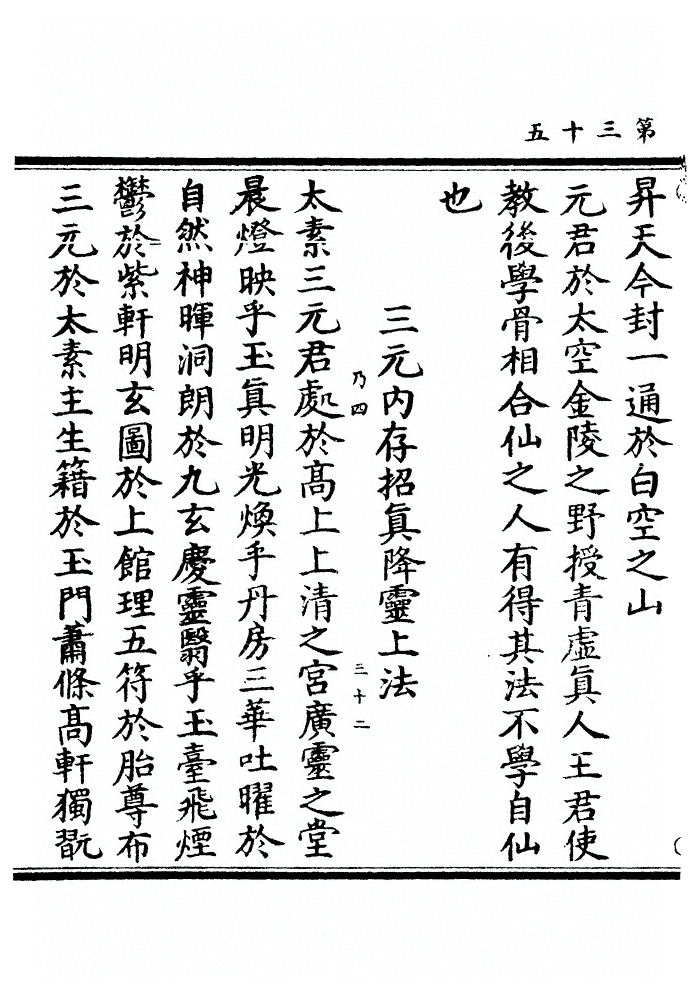 第三十五
昇天今封一通於白空之山
元君於太空金陵之野授青虛眞人王君使
教後學骨相合仙之人有得其法不學自仙
也
三元內存招眞降靈上法
乃四
三十二
太素三元君處於高上上清之宮廣靈之堂
晨燈映乎玉眞明光煥乎丹房三華吐曜於
自然神暉洞朗於九玄慶靈翳乎玉臺飛煙
鬱於紫軒明玄圖於上館理五符於胎尊布
三元於太素主生籍於玉門蕭條高軒獨翫